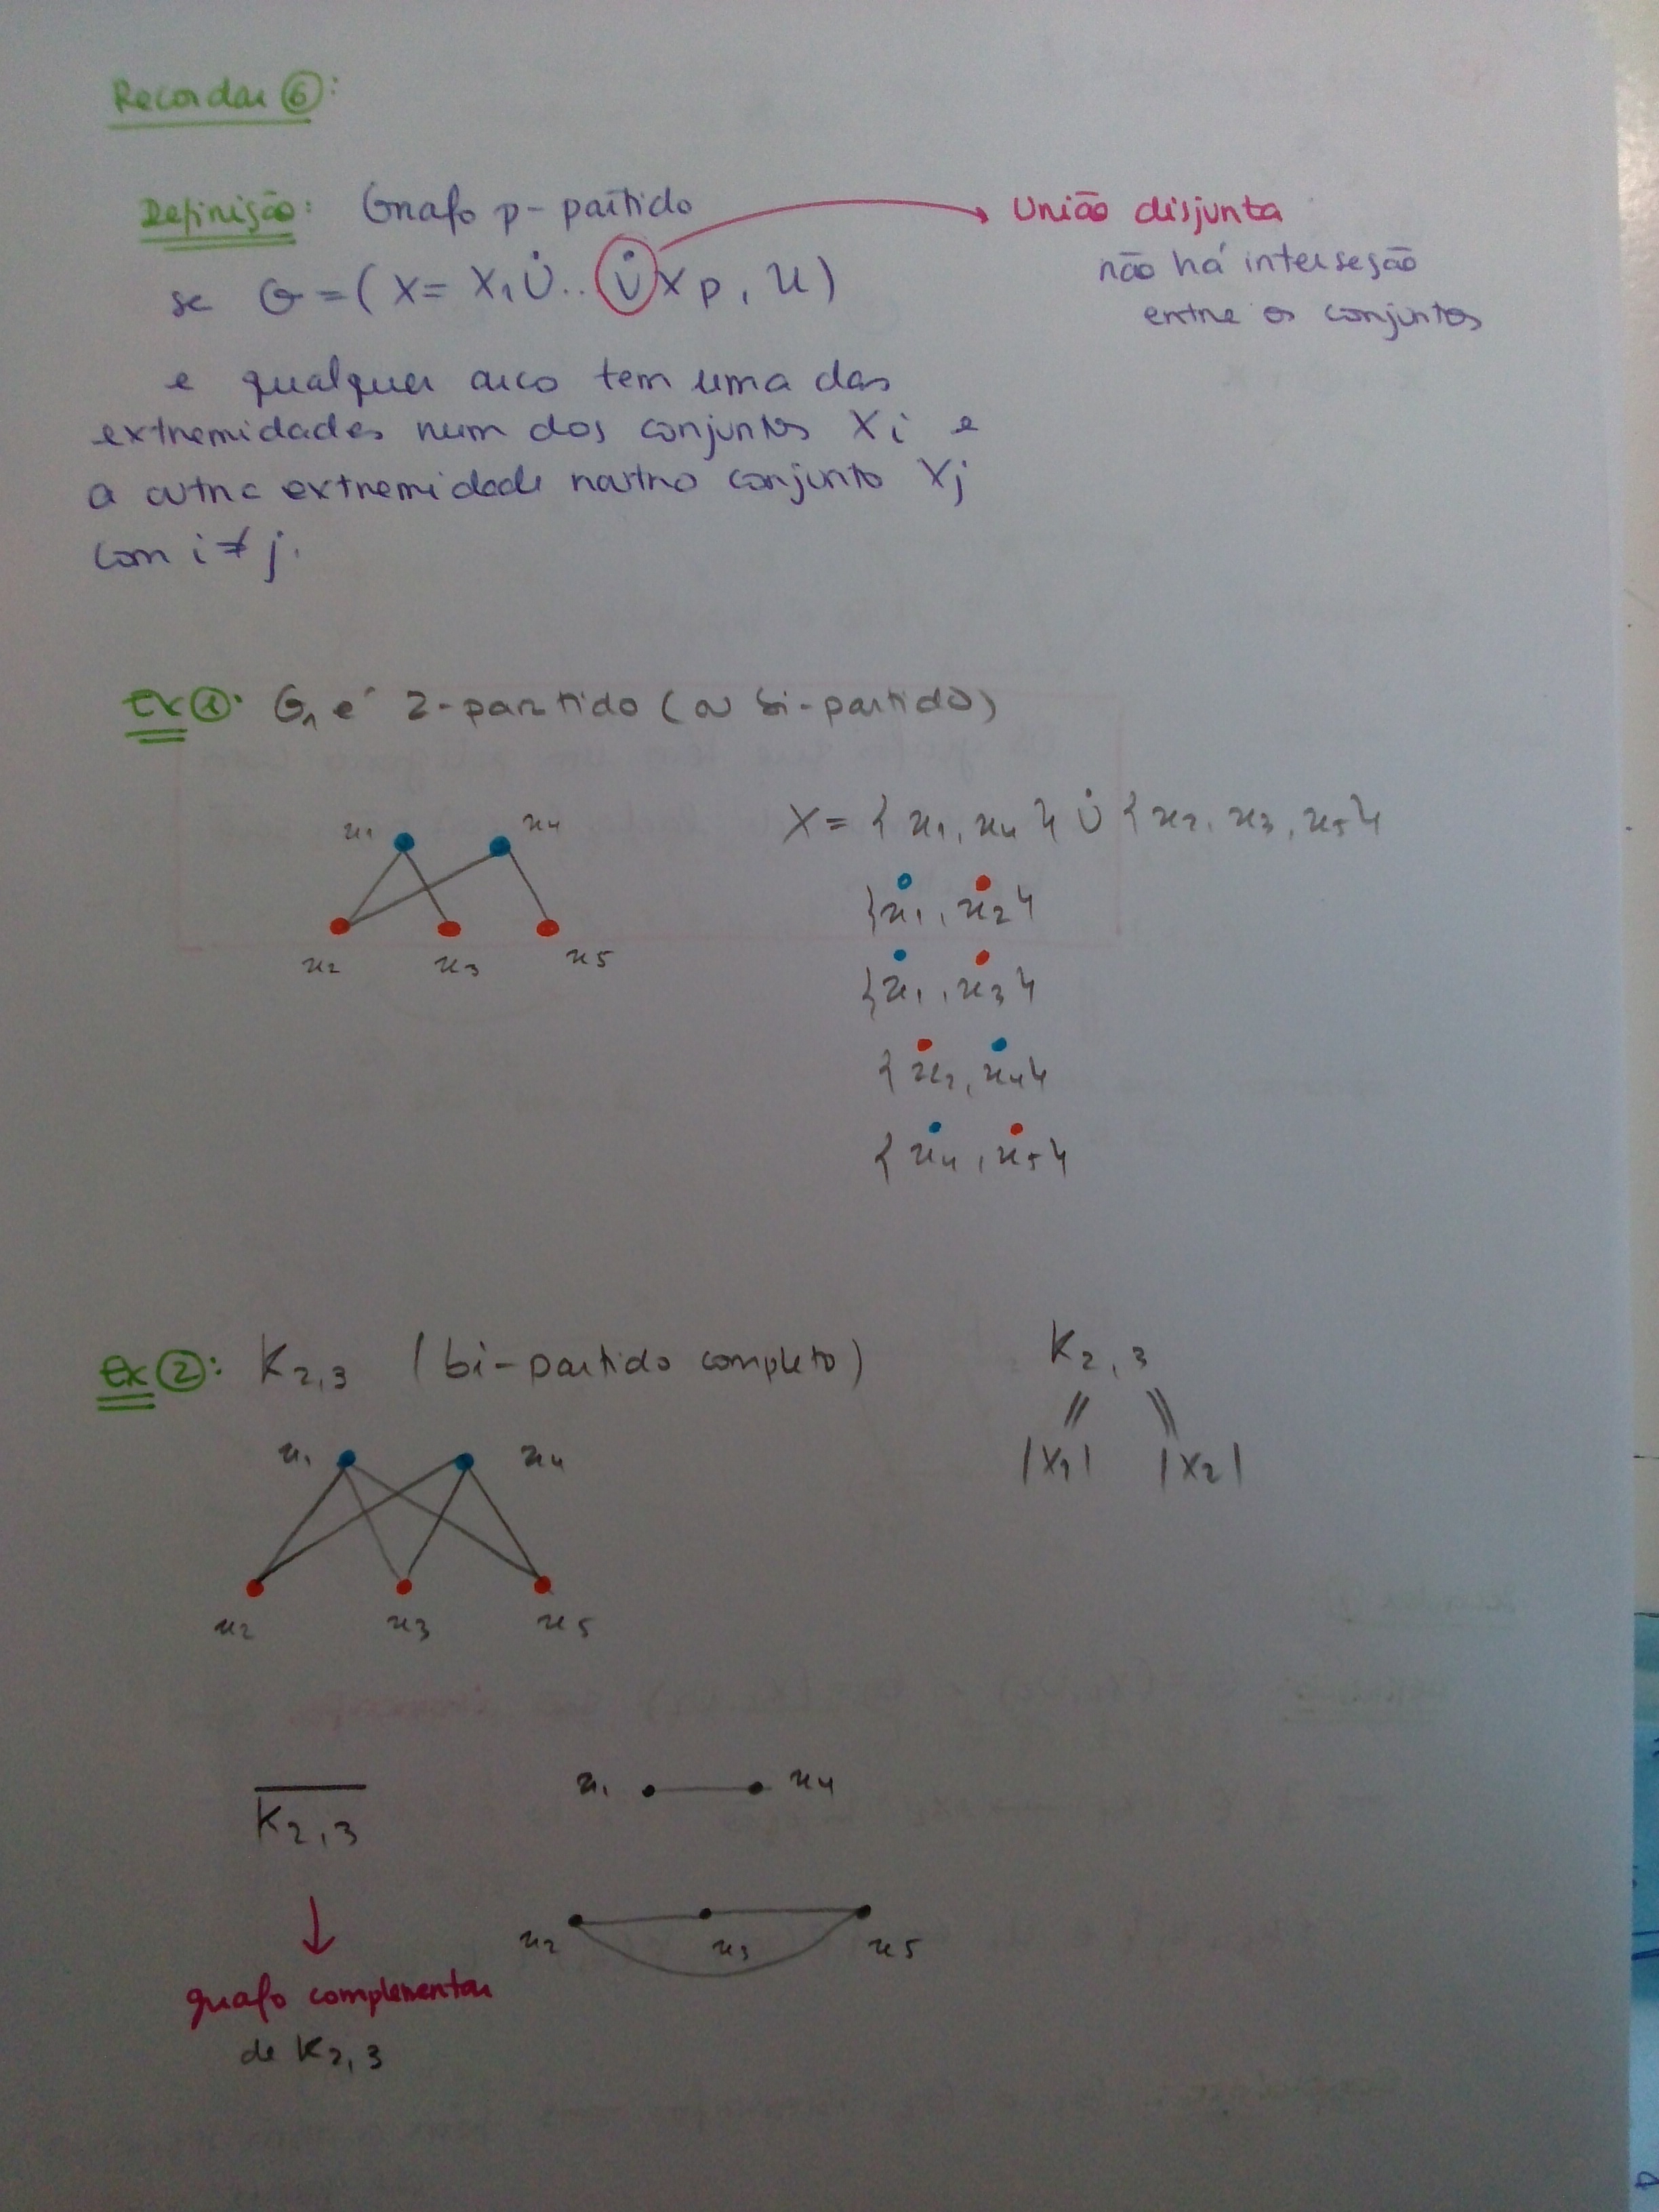 Recordar ⑥:
Definição: Grafo p-partido
União disjunta
não há interseção
entre os conjuntos
se G = ( X = X₁ ∪̇ .. ∪̇ Xp , U )
e qualquer arco tem uma das
extremidades num dos conjuntos Xi e
a outra extremidade noutro conjunto Xj
com i ≠ j.
Ex ①: G₁ é 2-partido (ou bi-partido)
x₁ x₄
x₂ x₃ x₅
X = { x₁, x₄ } ∪̇ { x₂, x₃, x₅ }
{ x₁, x₂ }
{ x₁, x₃ }
{ x₂, x₄ }
{ x₄, x₅ }
Ex ②: K₂,₃ (bi-partido completo)
x₁ x₄
x₂ x₃ x₅
K₂,₃
|X₁| |X₂|
K̅₂,₃
x₁ x₄
x₂ x₃ x₅
grafo complementar
de K₂,₃